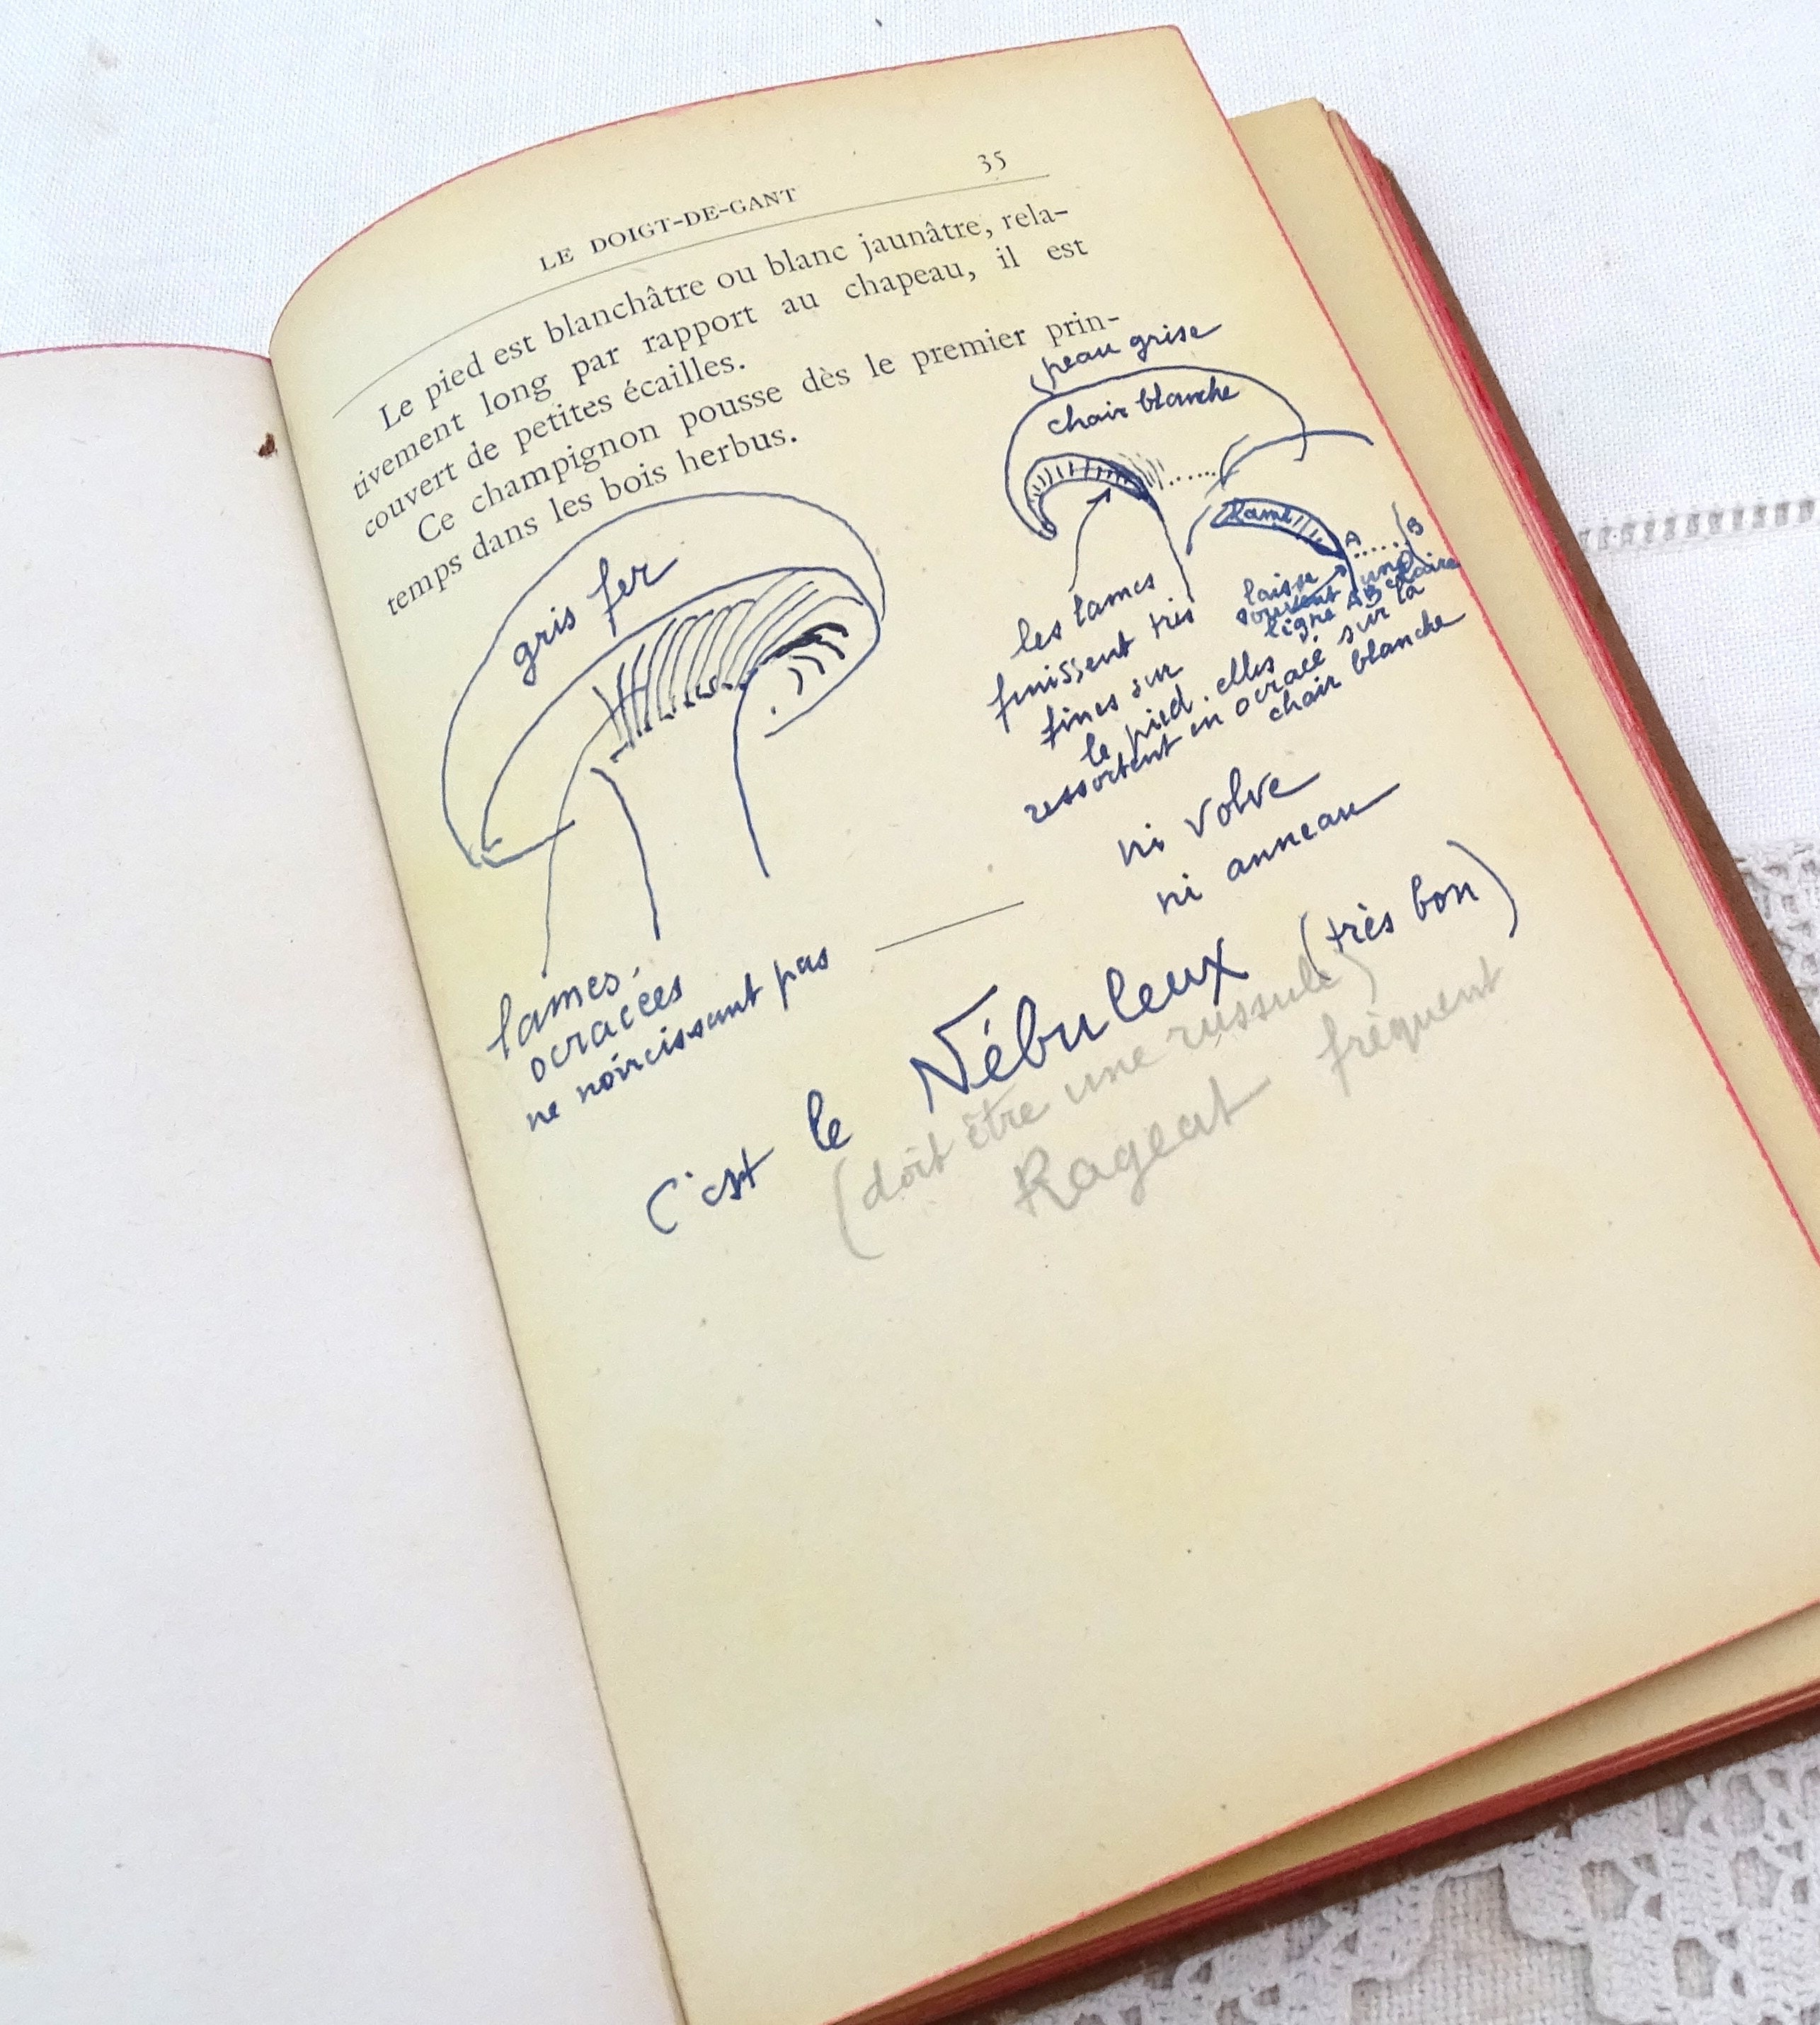 LE DOIGT-DE-GANT 35
Le pied est blanchâtre ou blanc jaunâtre, rela-
tivement long par rapport au chapeau, il est
couvert de petites écailles.
Ce champignon pousse dès le premier prin-
temps dans les bois herbus.
gris fer
lames
ocracées
ne noircissant pas
peau grise
chair blanche
les lames
finissent très
fines sur
le pied. elles
ressortent en ocracé sur la
chair blanche
lame
A B
laisse
souvent une
ligne AB claire
ni volve
ni anneau
C'est le Nébuleux (très bon)
(doit être une russule)
Rageat fréquent